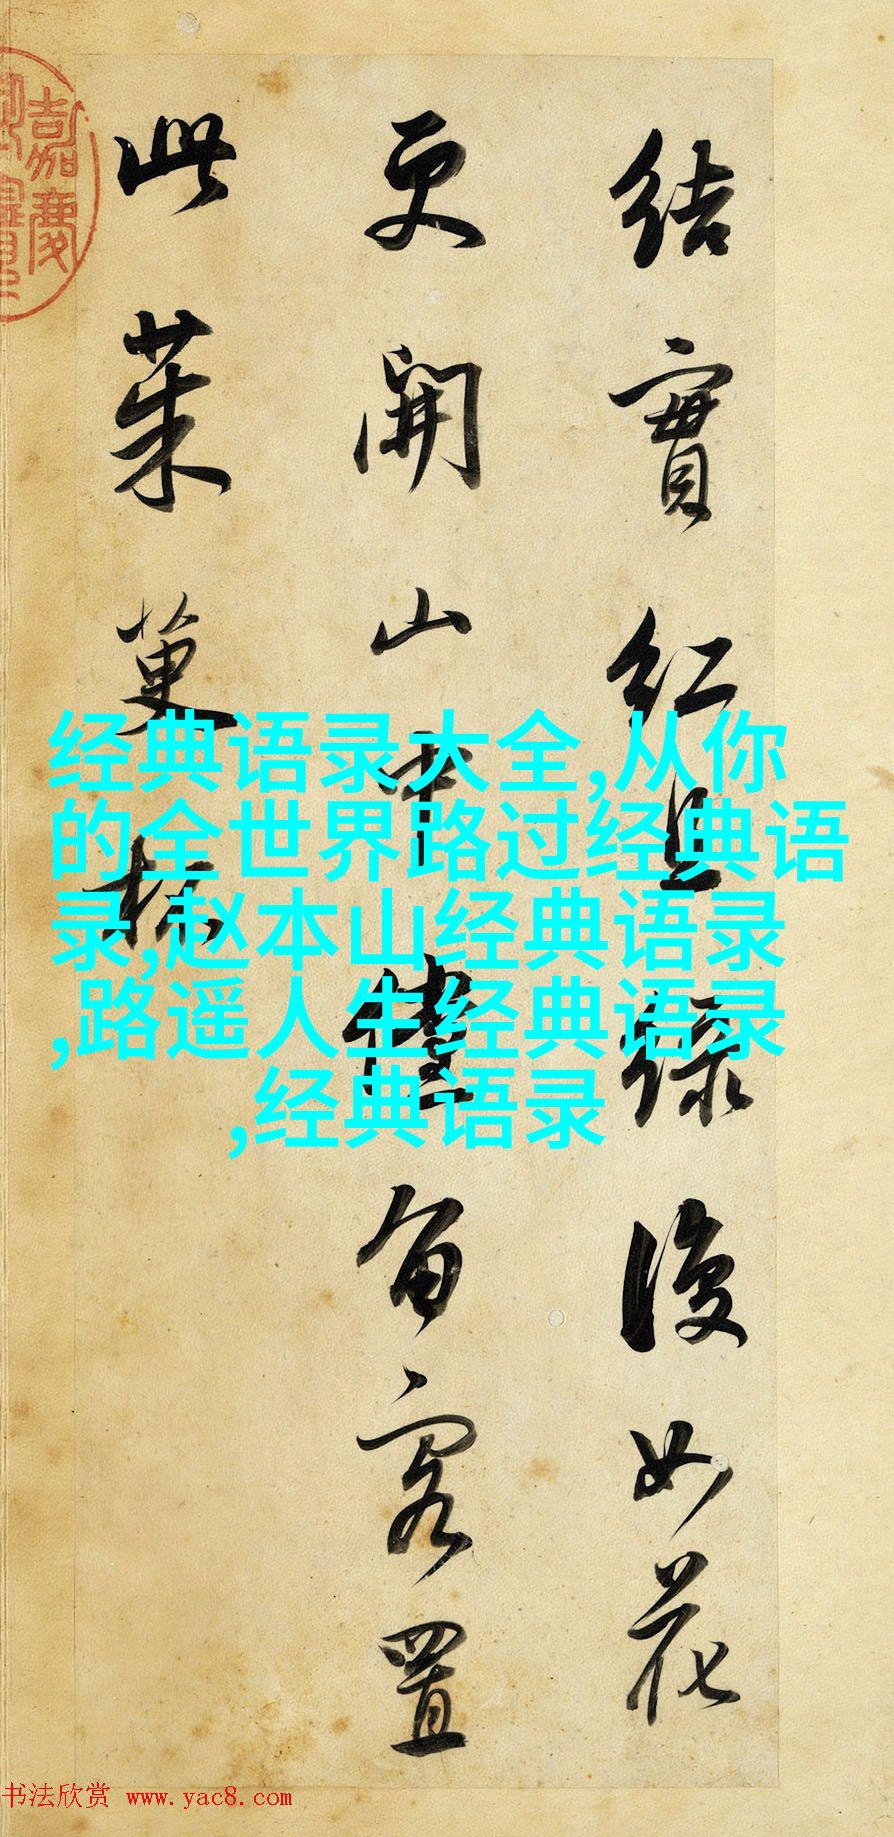 結實紅且綠復如花
更開山中儻留客置
此茱萸杯
嘉慶
经典语录大全,从你
的全世界路过经典语
录,赵本山经典语录
,路遥人生经典语录
,经典语录
书法欣赏 www.yac8.com